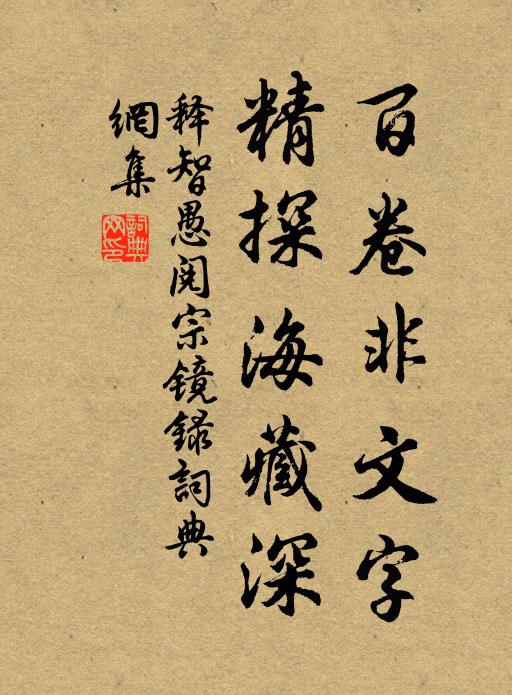 百卷非文字
精探海藏深
释智愚阅宗镜録詞典
網集
詞典
网印